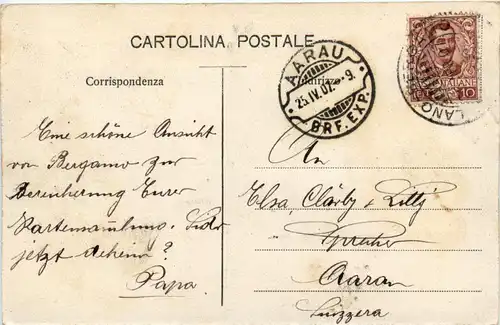 CARTOLINA POSTALE
Corrispondenza
Indirizzo
AARAU
25.IV.07.-9.
BRF. EXP.
ITALIANE
10
Eine schöne Ansicht
von Bergamo zur
Bereicherung Eurer
Kartensammlung. Seid Ihr
jetzt daheim?
Papa
An
Elsa, Clärly & Lilly
Sprecher
Aarau
Suizzera